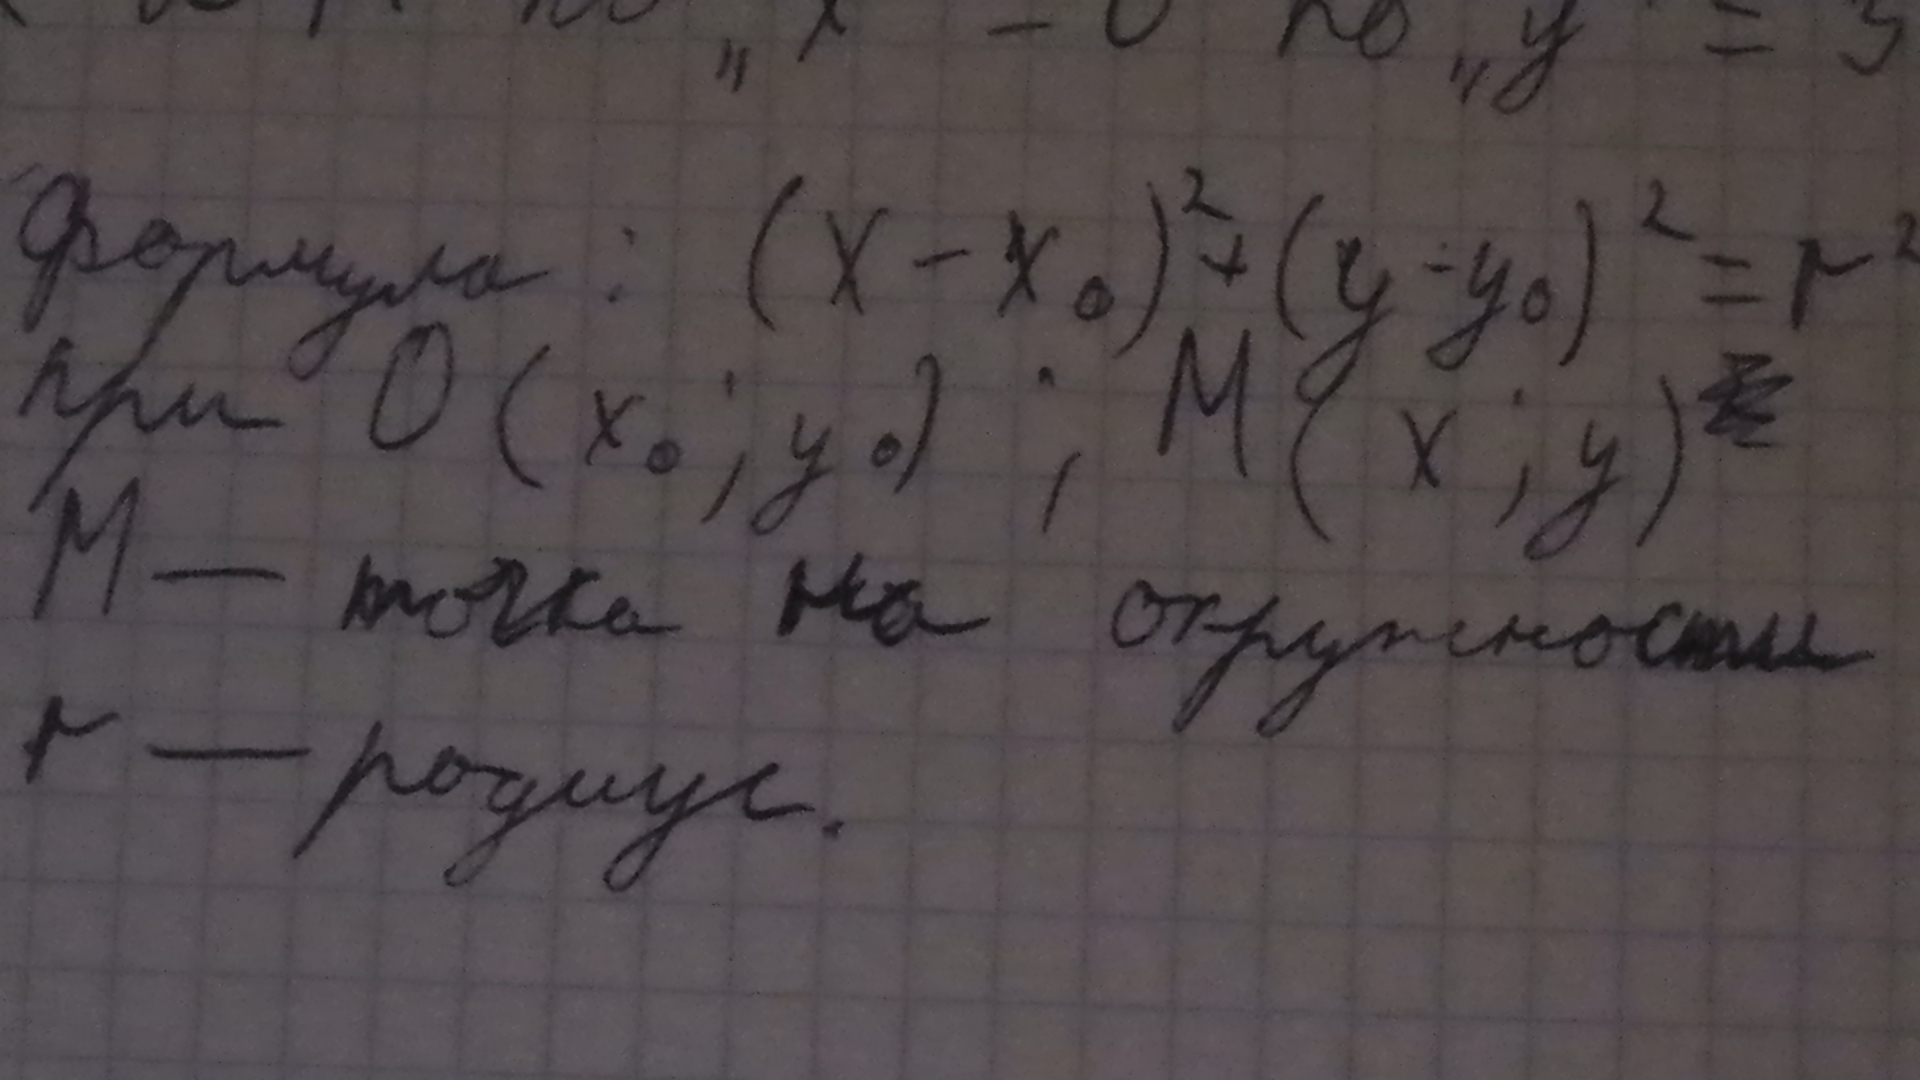 по „x" = 0 по „y" = 3
Формула: (x - x₀)² + (y - y₀)² = r²
при O(x₀; y₀); M(x; y)
M — точка на окружности
r — радиус.